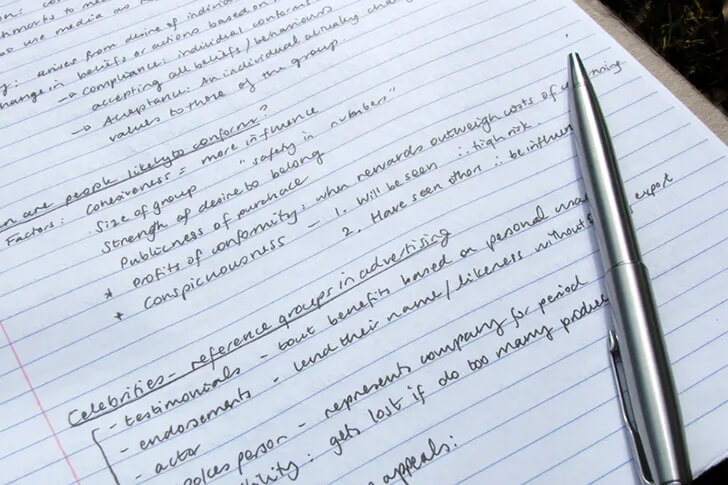 arises from desire of individ
change in beliefs or actions based on
→ Compliance: individual conform
accepting all beliefs/behaviours
→ Acceptance: An individual actually chang
values to those of the group.
are people likely to conform?
Factors: Cohesiveness = more influence
Size of group "safety in numbers"
Strength of desire to belong
Publicness of purchase
* profits of conformity: when rewards outweigh costs of
* Conspicuousness – 1. Will be seen ∴ high risk.
2. Have seen others ∴ be influen
Celebrities – reference groups in advertising
- testimonials – tout benefits based on personal
- endorsements – lend their name/likeness without export
- actor
person – represents company for period
: gets lost if do too many produc
appeals: